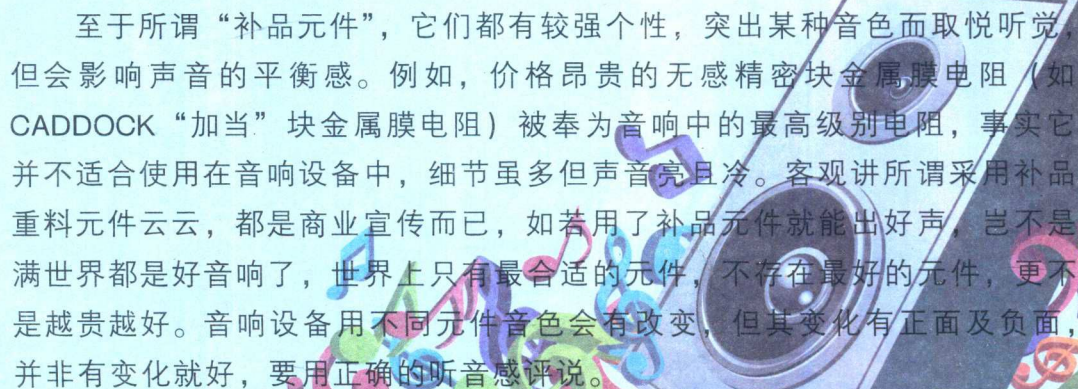 至于所谓“补品元件”，它们都有较强个性，突出某种音色而取悦听觉，
但会影响声音的平衡感。例如，价格昂贵的无感精密块金属膜电阻（如
CADDOCK“加当”块金属膜电阻）被奉为音响中的最高级别电阻，事实它
并不适合使用在音响设备中，细节虽多但声音亮且冷。客观讲所谓采用补品
重料元件云云，都是商业宣传而已，如若用了补品元件就能出好声，岂不是
满世界都是好音响了，世界上只有最合适的元件，不存在最好的元件，更不
是越贵越好。音响设备用不同元件音色会有改变，但其变化有正面及负面，
并非有变化就好，要用正确的听音感评说。